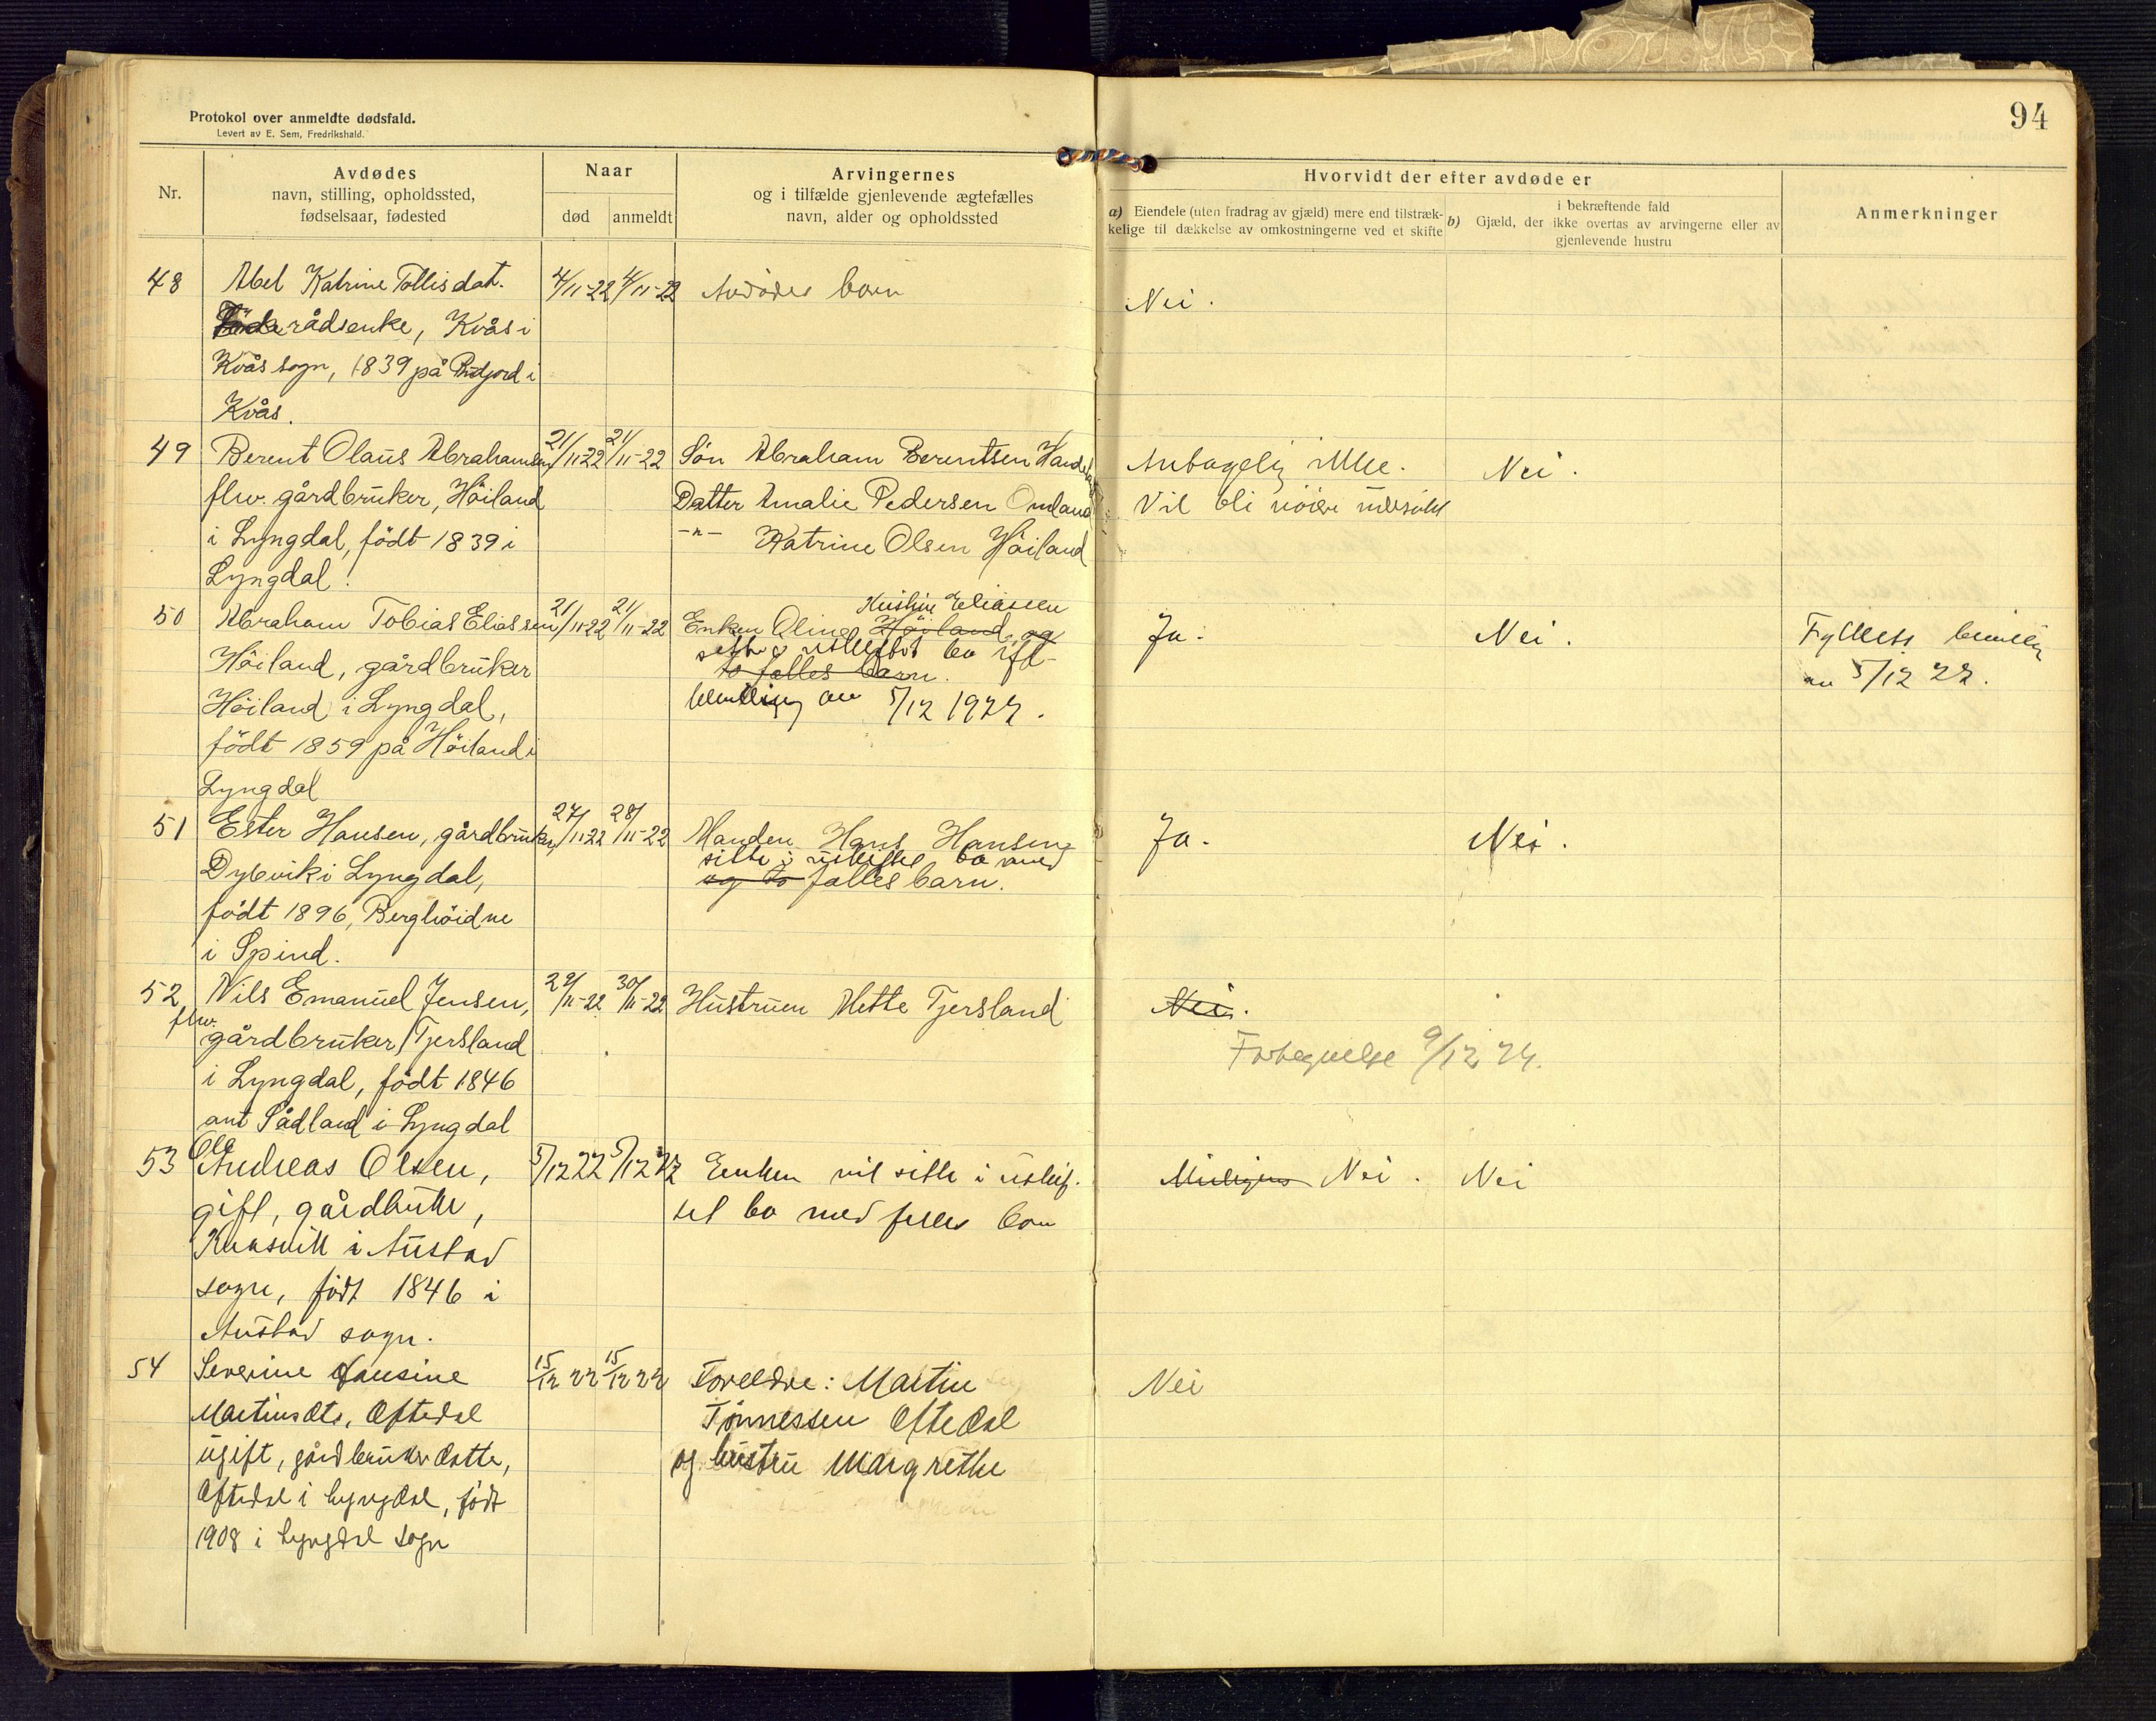 Protokol over anmeldte dødsfald.
Levert av E. Sem, Fredrikshald.
94
Nr.
Avdødes
navn, stilling, opholdssted,
fødselsaar, fødested
Naar
død
anmeldt
Arvingernes
og i tilfælde gjenlevende ægtefælles
navn, alder og opholdssted
Hvorvidt der efter avdøde er
a) Eiendele (uten fradrag av gjæld) mere end tilstræk-
kelige til dækkelse av omkostningerne ved et skifte
i bekræftende fald
b) Gjæld, der ikke overtas av arvingerne eller av
gjenlevende hustru
Anmerkninger
48 Abel Katrine Tollisdat. 4/11-22 4/11-22 Avdødes barn Nei.
rådsenke, Kvås i
Kvås sogn, 1839 på i
Kvås.
49 Berent Olaus Abrahamsen 21/11-22 21/11-22 Søn Abraham Berentsen Antagelig ikke. Nei.
flw. gårdbruker, Höiland Datter Amalie Pedersen Omland Vil bli nöiere
i Lyngdal, födt 1839 i -"- Katrine Olsen Höiland
Lyngdal.
50 Abraham Tobias Eliassen 21/11-22 21/11-22 Enken Oline Höiland og Ja. Nei.
Kristine Eliassen
Höiland, gårdbruker to felles barn. 5/12 22.
Höiland i Lyngdal, 5/12 1922.
födt 1859 på Höiland i
Lyngdal
51 Ester Hansen, gårdbruker, 27/11-22 28/11-22 Manden Hans Hansen Ja. Nei.
sitter i uskiftet bo med
Dybvik i Lyngdal, og to felles barn.
födt 1896, Berghöidne
i Spind.
52 Nils Emanuel Jensen, 29/11-22 30/11-22 Hustruen Mette Tjersland Nei.
flw.
gårdbruker, Tjersland
i Lyngdal, födt 1846
ant Sådland i Lyngdal
53 Ole
Andreas Olsen, 5/12 22 5/12 22 Enken vil sitte i uskif- Nei. Nei
gift, gårdbruker, tet bo med felles barn
i Austad
sogn, födt 1846 i
Austad sogn.
54 Severine Jansine 15/12 22 15/12 22 Foreldre: Martin Nei
Martinsdtr. Oftedal Tönnessen Oftedal
ugift, gårdbruker datter, og hustru Margrethe
Oftedal i Lyngdal, födt
1908 i Lyngdal sogn